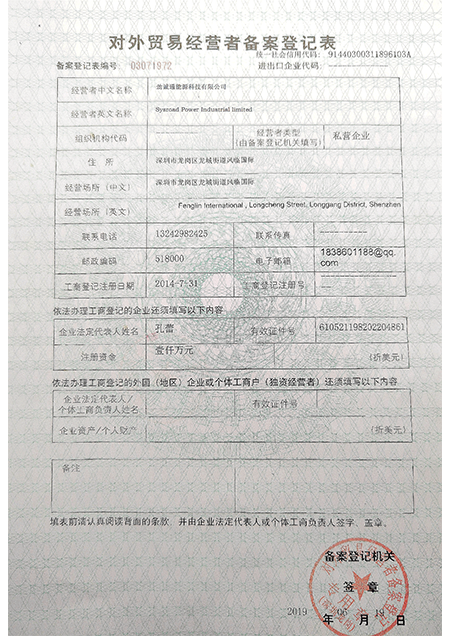 对外贸易经营者备案登记表
统一社会信用代码: 91440300311896103A
备案登记表编号: 03071972 进出口企业代码:
经营者中文名称 能源科技有限公司
经营者英文名称 Sysroad Power Industrial limited
组织机构代码 经营者类型 (由备案登记机关填写) 私营企业
住 所 深圳市龙岗区龙城街道风临国际
经营场所(中文) 深圳市龙岗区龙城街道风临国际
经营场所(英文) Fenglin International , Longcheng Street, Longgang District, Shenzhen
联系电话 13242982425 联系传真
邮政编码 518000 电子邮箱 1838601188@qq.com
工商登记注册日期 2014-7-31 工商登记注册号
依法办理工商登记的企业还须填写以下内容
企业法定代表人姓名 孔蕾 有效证件号 610521198202204861
注册资金 壹仟万元 (折美元)
依法办理工商登记的外国(地区)企业或个体工商户(独资经营者)还须填写以下内容
企业法定代表人/个体工商负责人姓名 有效证件号
企业资产/个人财产 (折美元)
备注
填表前请认真阅读背面的条款, 并由企业法定代表人或个体工商负责人签字、盖章。
备案登记机关
签 章
2019 年 06 月 19 日